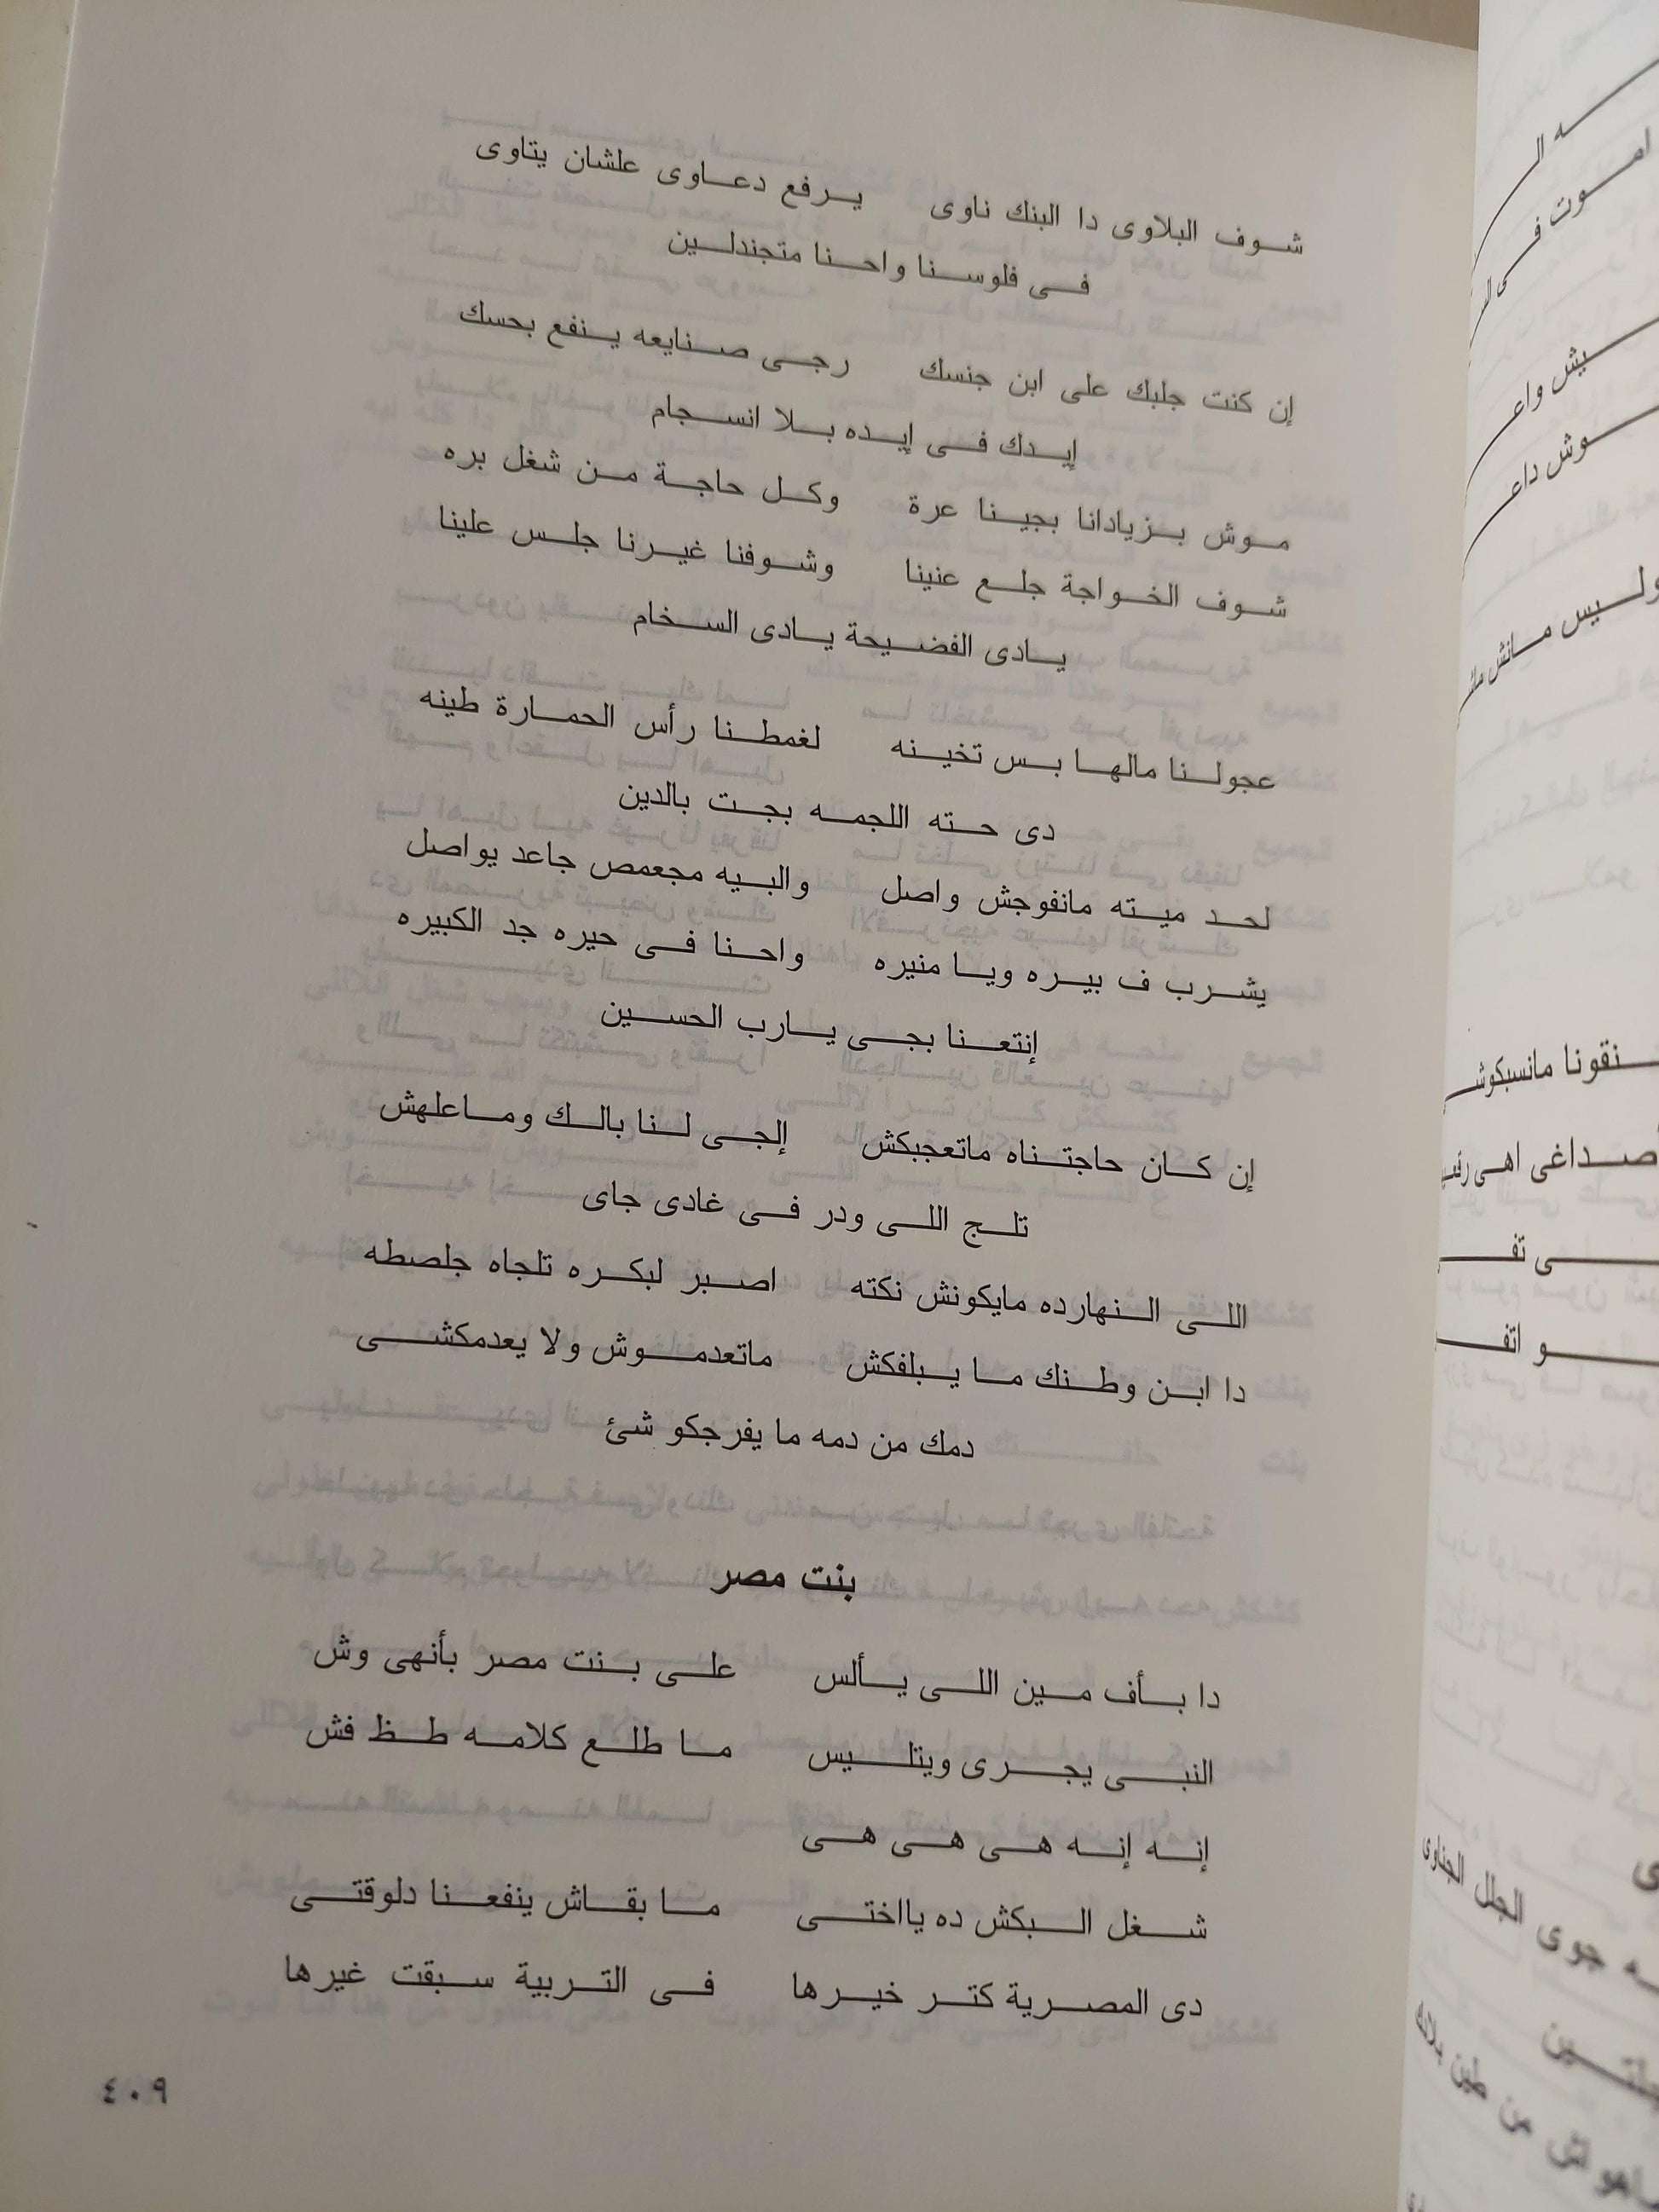 شوف البلاوى دا البنك ناوى يرفع دعاوى علشان يتاوى
فى فلوسنا واحنا متجندلين
إن كنت جلبك على ابن جنسك رجى صنايعه ينفع بحسك
إيدك فى إيده بلا انسجام
موش بزيادانا بجينا عرة وكل حاجة من شغل بره
شوف الخواجة جلع عنينا وشوفنا غيرنا جلس علينا
يادى الفضيحة يادى السخام
عجولنا مالها بس تخينه لغمطنا رأس الحمارة طينه
دى حته اللجمه بجت بالدين
لحد ميته مانفوجش واصل والبيه مجعمص جاعد يواصل
يشرب ف بيره ويا منيره واحنا فى حيره جد الكبيره
إنتعنا بجى يارب الحسين
إن كان حاجتناه ماتعجبكش إلجى لنا بالك وماعلهش
تلج اللى ودر فى غادى جاى
اللى النهارده مايكونش نكته اصبر لبكره تلجاه جلصطه
دا ابن وطنك ما يبلفكش ماتعدموش ولا يعدمكشى
دمك من دمه ما يفرجكو شئ
بنت مصر
دا بأف مين اللى يألس على بنت مصر بأنهى وش
النبى يجرى ويتلبس ما طلع كلامه طظ فش
إنه إنه هى هى هى
شغل البكش ده يااختى ما بقاش ينفعنا دلوقتى
دى المصرية كتر خيرها فى التربية سبقت غيرها
٤٠٩
اموت فى
يش واع
وش داع
وليس مانش
نقونا مانسبكوش
صداغى اهى
ى تف
و اتف
ه جوى الجلل الجناوى
من طين